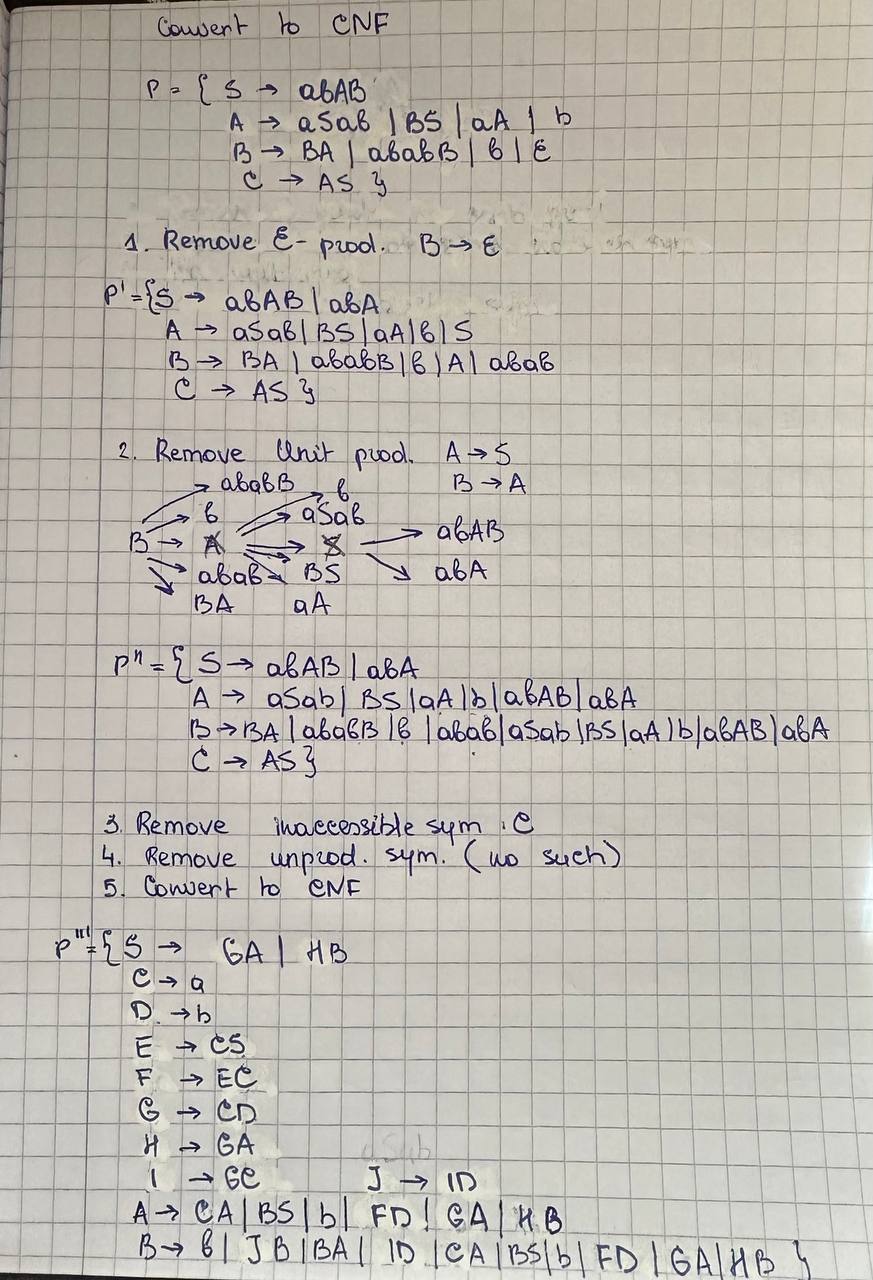 Convert to CNF
P = { S → abAB
A → aSab | BS | aA | b
B → BA | ababB | b | ε
C → AS }
1. Remove ε- prod. B → ε
P' = { S → abAB | abA
A → aSab | BS | aA | b | S
B → BA | ababB | b | A | abab
C → AS }
2. Remove Unit prod. A → S
B → A
ababB b
b aSab
B → A S abAB
abab BS abA
BA aA
P'' = { S → abAB | abA
A → aSab | BS | aA | b | abAB | abA
B → BA | ababB | b | abab | aSab | BS | aA | b | abAB | abA
C → AS }
3. Remove inaccessible sym : C
4. Remove unprod. sym. (no such)
5. Convert to CNF
P''' = { S → GA | HB
C → a
D → b
E → CS
F → EC
G → CD
H → GA
I → GC J → ID
A → CA | BS | b | FD | GA | HB
B → b | JB | BA | ID | CA | BS | b | FD | GA | HB }